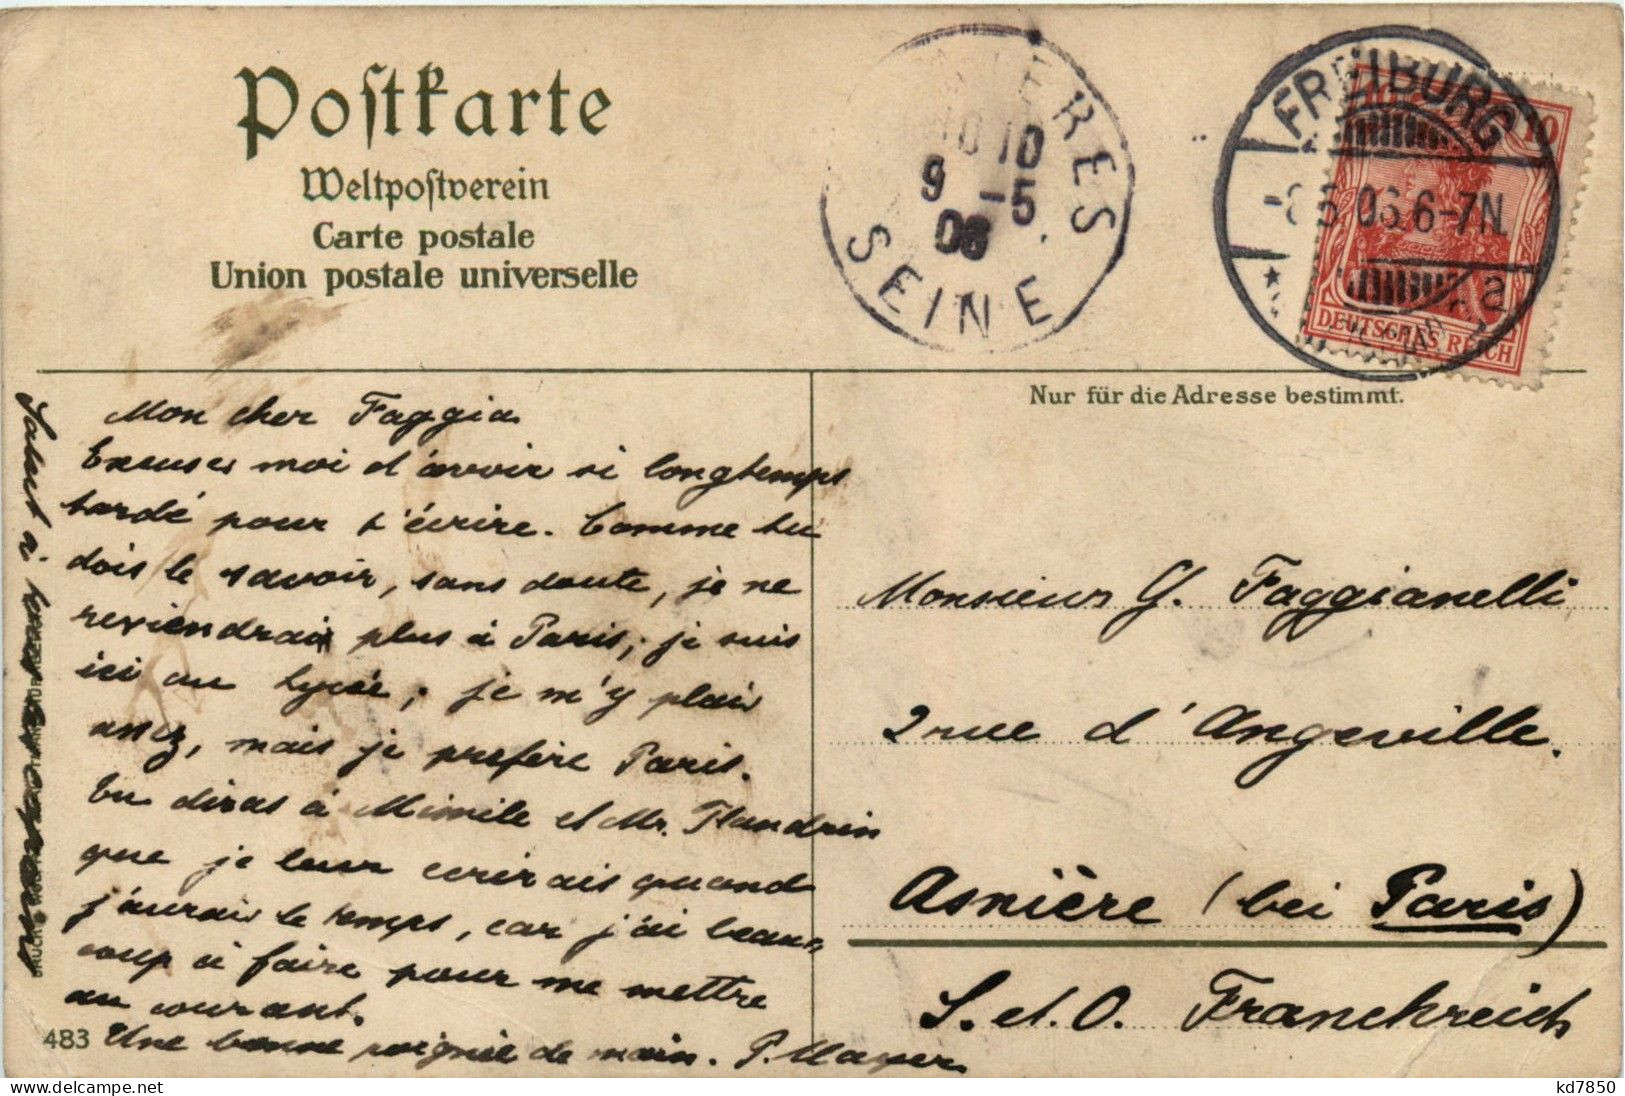 Postkarte
Weltpostverein
Carte postale
Union postale universelle
SEINE
10 10
9 -5
06
FREIBURG
10
-8 5 06 6-7N
* a
DEUTSCHES REICH
Nur für die Adresse bestimmt.
Mon cher Faggia
Excuses moi d'avoir si longtemps
tardé pour t'écrire. Comme tu
dois le savoir, sans doute, je ne
reviendrai plus à Paris; je suis
ici au lycée; je m'y plais
assez, mais je prefère Paris.
Tu diras à Mimile et Mr. Flandrin
que je leur ecrirais quand
j'aurais le temps, car j'ai beau-
coup à faire pour me mettre
au courant.
Une bonne poignée de main. P. Mayer
Salut à tous les copains
483
Monsieur G. Faggianelli
2 rue d'Angeville.
Asnière (bei Paris)
S. et. O. Franckreich
kd7850